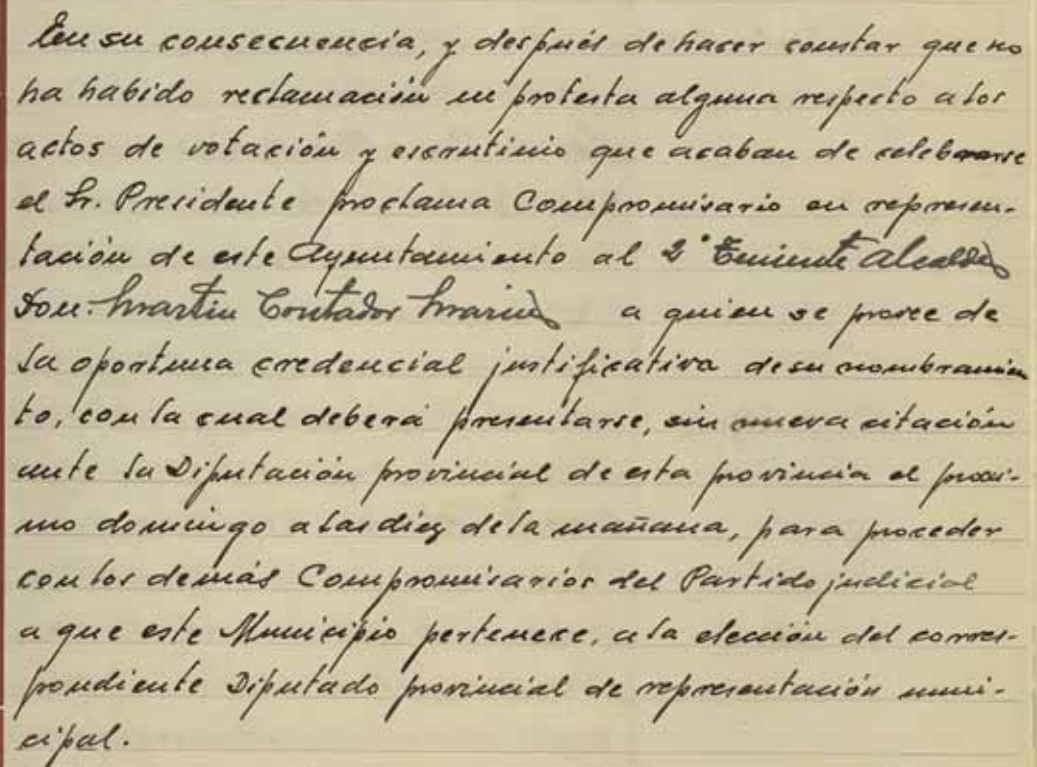 En su consecuencia, y después de hacer constar que no
ha habido reclamación ni protesta alguna respecto a los
actos de votación y escrutinio que acaban de celebrarse
el Sr. Presidente proclama Compromisario en represen-
tación de este Ayuntamiento al 2º Teniente Alcalde
Don. Martin Contador Marin a quien se provee de
la oportuna credencial justificativa de su nombramien
to, con la cual deberá presentarse, sin nueva citación
ante la Diputación provincial de esta provincia el próxi-
mo domingo a las diez de la mañana, para proceder
con los demás Compromisarios del Partido judicial
a que este Municipio pertenece, a la elección del corres-
pondiente Diputado provincial de representación muni-
cipal.